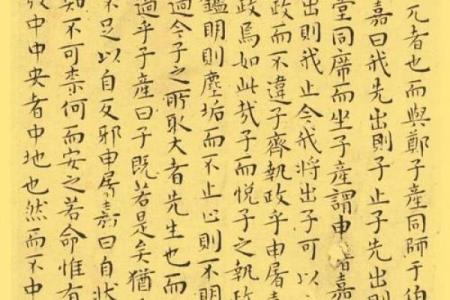 兀者也而與鄭子產同師于伯
嘉曰我先出則子止子先出則
堂同席而坐子產謂申嘉
出則我止今我將出子可以
政而不違子齊執政乎申屠
政焉如此哉子而悅子之執政
鑑明則塵垢而不止止則不明
過今子之所取大者先生也而
過乎子產曰子既若是矣猶
不足以自反邪申屠嘉曰自狀
知不可柰何而安之若命惟有
中中央者中地也然而不中